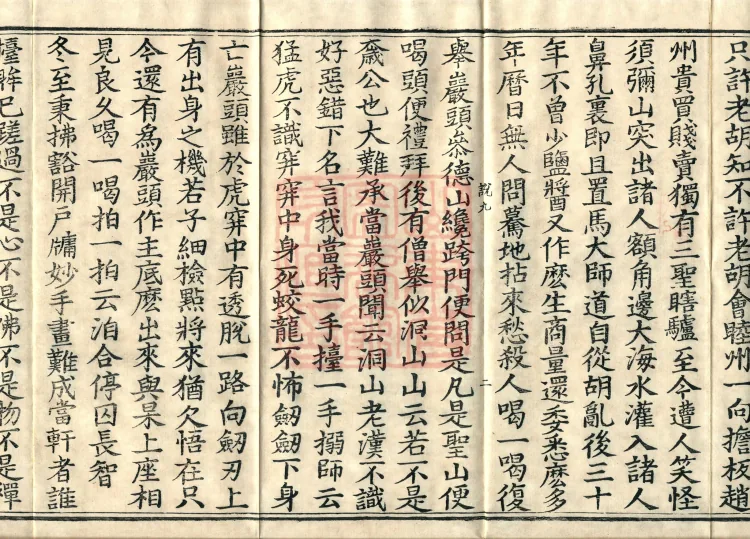 只許老胡知不許老胡會睦州一向擔板趙
州貴買賤賣獨有三聖瞎驢至今遭人笑怪
須彌山突出諸人額角邊大海水灌入諸人
鼻孔裏即且置馬大師道自從胡亂後三十
年不曾少鹽醬又作麽生商量還委悉麽多
年曆日無人問驀地拈來愁殺人喝一喝復
說九 二
舉巖頭叅德山纔跨門便問是凡是聖山便
喝頭便禮拜後有僧舉似洞山山云若不是
奯公也大難承當巖頭聞云洞山老漢不識
好惡錯下名言我當時一手擡一手搦師云
猛虎不識穽穽中身死蛟龍不怖劒劒下身
亡巖頭雖於虎穽中有透脫一路向劒刃上
有出身之機若子細檢點將來猶欠悟在只
今還有為巖頭作主底麽出來與杲上座相
見良久喝一喝拍一拍云洎合停囚長智
冬至秉拂豁開戶牗妙手畫難成當軒者誰
擡眸已蹉過不是心不是佛不是物不是禪